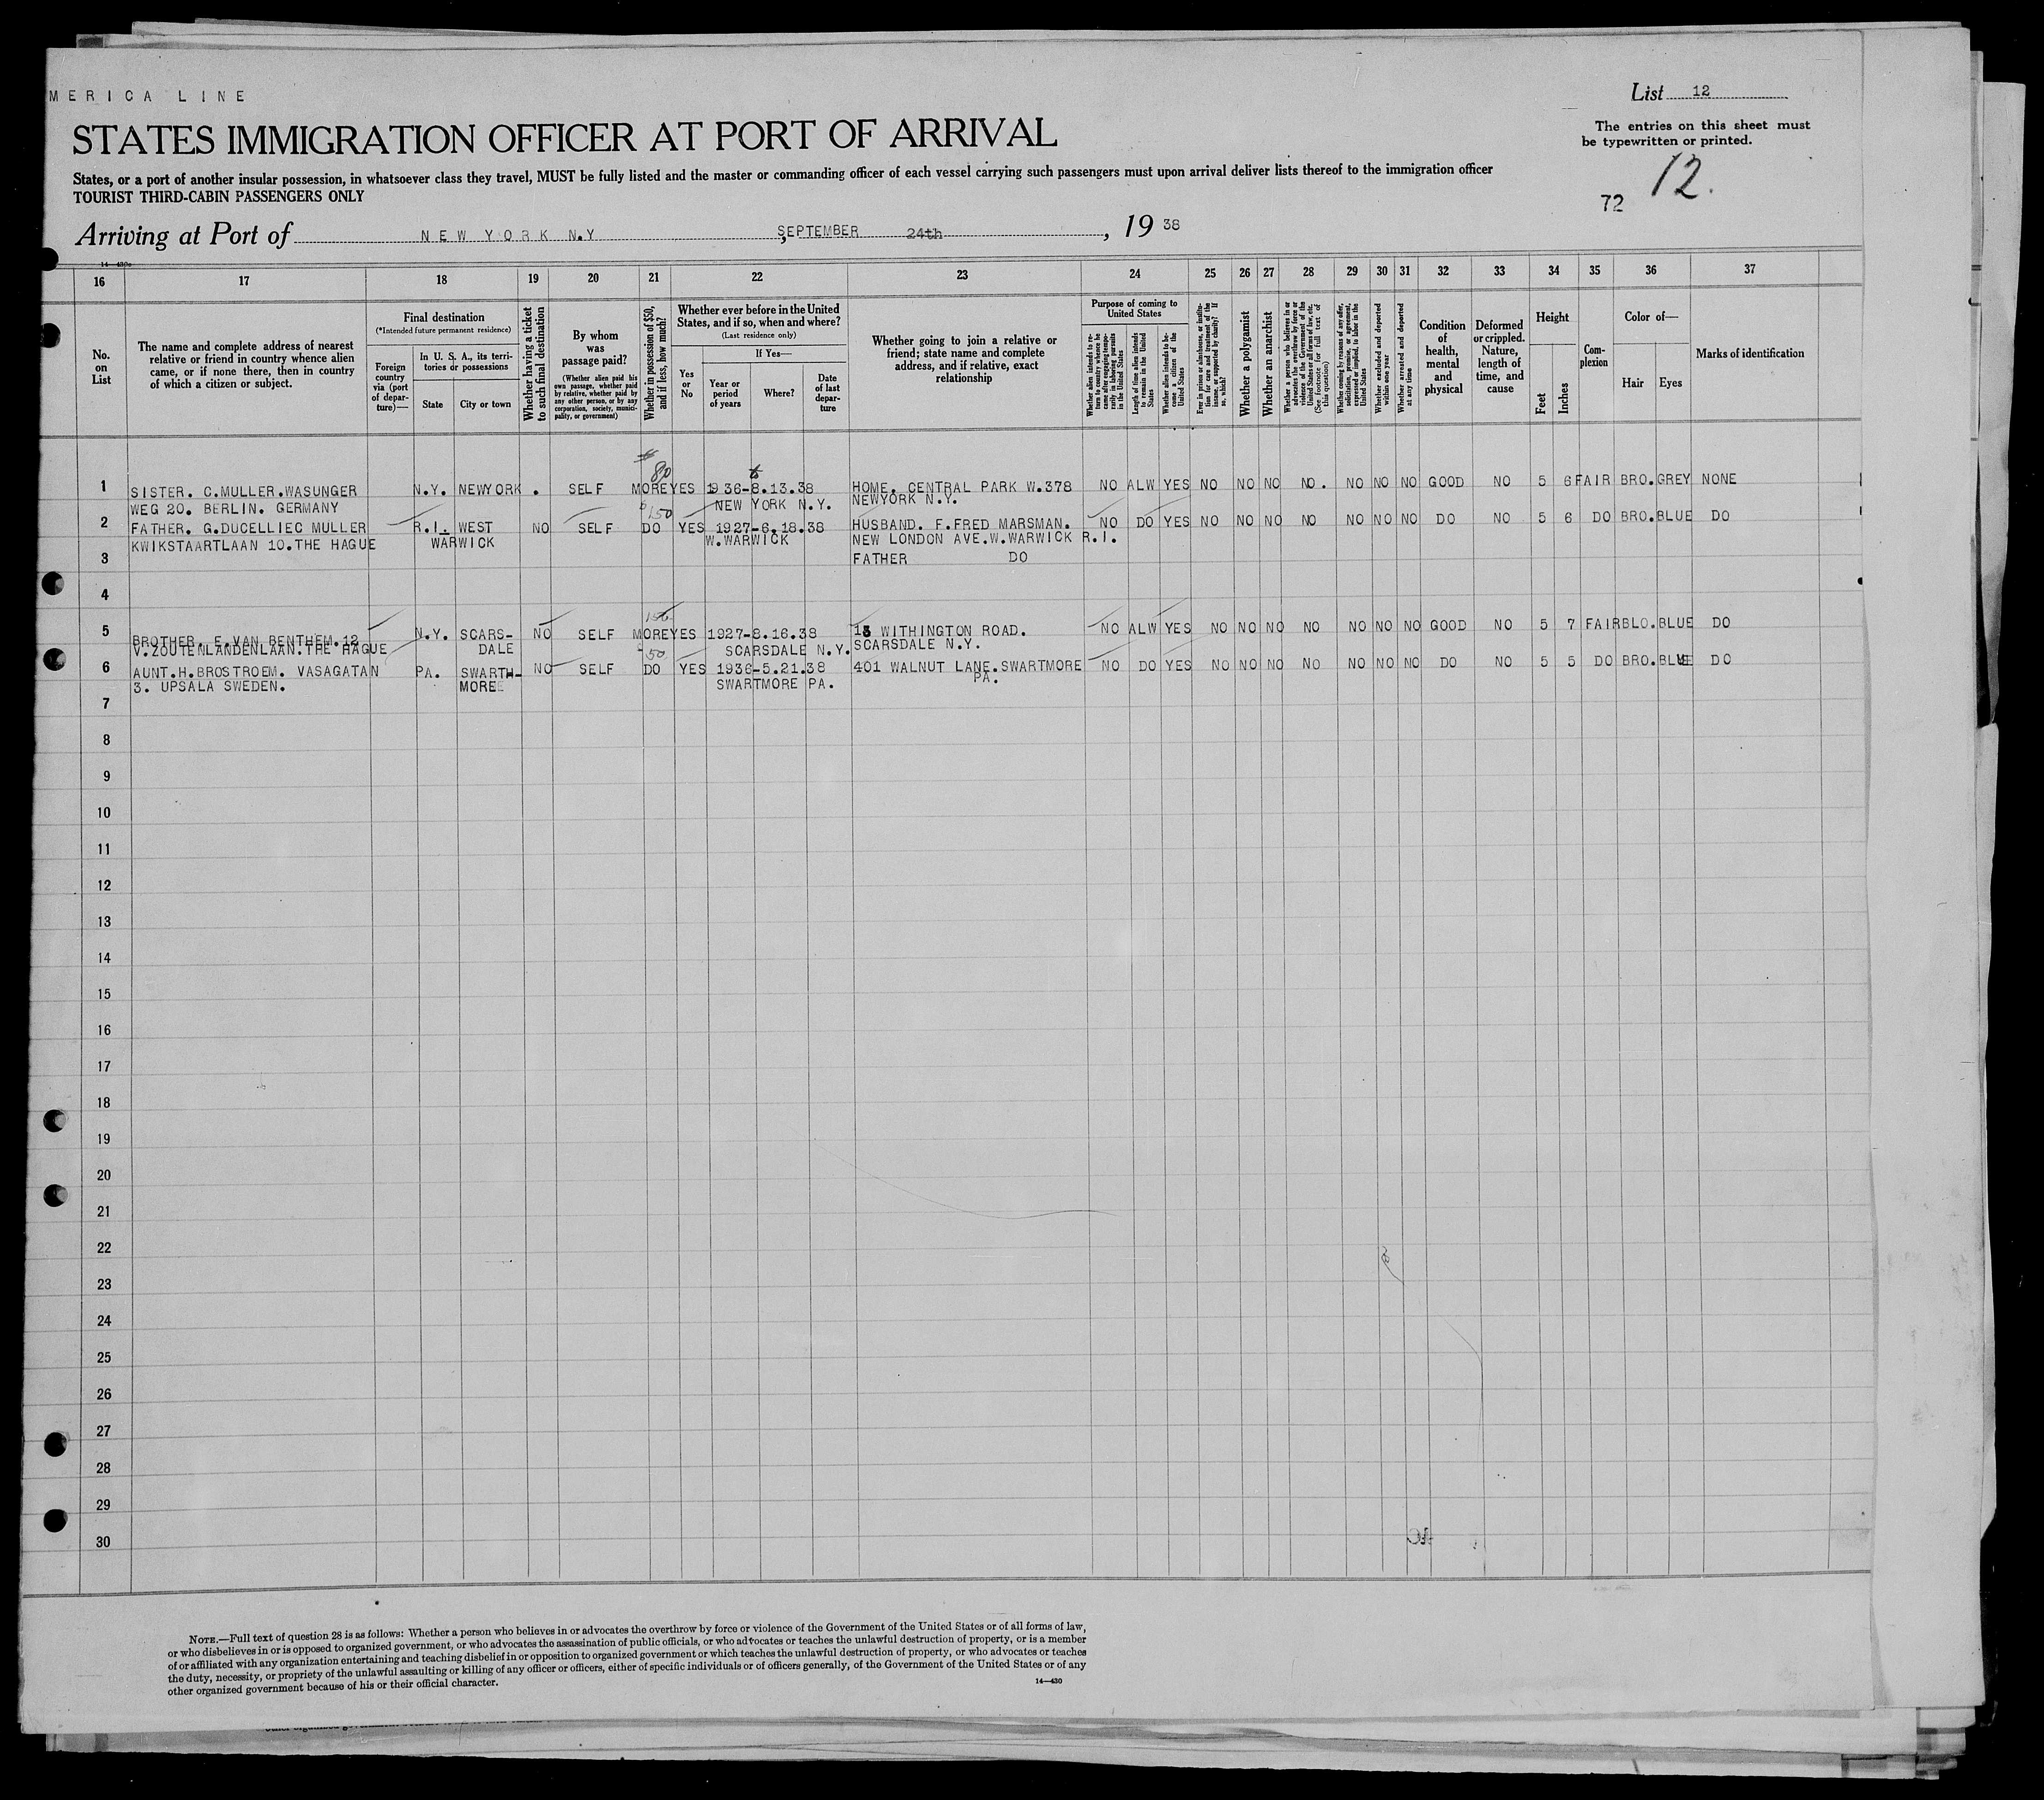 MERICA LINE
List 12
STATES IMMIGRATION OFFICER AT PORT OF ARRIVAL
The entries on this sheet must
be typewritten or printed.
States, or a port of another insular possession, in whatsoever class they travel, MUST be fully listed and the master or commanding officer of each vessel carrying such passengers must upon arrival deliver lists thereof to the immigration officer
TOURIST THIRD-CABIN PASSENGERS ONLY
72 12.
Arriving at Port of NEW YORK N.Y, SEPTEMBER 24th, 19 38
14—430a
16 17 18 19 20 21 22 23 24 25 26 27 28 29 30 31 32 33 34 35 36 37
No. on List
The name and complete address of nearest relative or friend in country whence alien came, or if none there, then in country of which a citizen or subject.
Final destination
(*Intended future permanent residence)
Foreign country via (port of departure)—
In U. S. A., its territories or possessions
State
City or town
Whether having a ticket to such final destination
By whom was passage paid?
(Whether alien paid his own passage, whether paid by relative, whether paid by any other person, or by any corporation, society, municipality, or government)
Whether in possession of $50, and if less, how much?
Whether ever before in the United States, and if so, when and where?
(Last residence only)
Yes or No
If Yes—
Year or period of years
Where?
Date of last departure
Whether going to join a relative or friend; state name and complete address, and if relative, exact relationship
Purpose of coming to United States
Whether alien intends to return to country whence he came after engaging temporarily in laboring pursuits in the United States
Length of time alien intends to remain in the United States
Whether alien intends to become a citizen of the United States
Ever in prison or almshouse, or institution for care and treatment of the insane, or supported by charity? If so, which?
Whether a polygamist
Whether an anarchist
Whether a person who believes in or advocates the overthrow by force or violence of the Government of the United States or all forms of law, etc. (See footnote for full text of this question)
Whether coming by reasons of any offer, solicitation, promise, or agreement, expressed or implied, to labor in the United States
Whether excluded and deported within one year
Whether arrested and deported at any time
Condition of health, mental and physical
Deformed or crippled. Nature, length of time, and cause
Height
Feet
Inches
Complexion
Color of—
Hair
Eyes
Marks of identification
$ 80
1 SISTER. C.MULLER.WASUNGER N.Y. NEWYORK . SELF MORE YES 1936-8.13.38 HOME. CENTRAL PARK W.378 NO ALW YES NO NO NO NO. NO NO NO GOOD NO 5 6 FAIR BRO. GREY NONE
WEG 20. BERLIN. GERMANY NEW YORK N.Y. NEWYORK N.Y.
$150
2 FATHER. G.DUCELLIEC MULLER R.I. WEST NO SELF DO YES 1927-6.18.38 HUSBAND. F.FRED MARSMAN. NO DO YES NO NO NO NO NO NO NO DO NO 5 6 DO BRO. BLUE DO
KWIKSTAARTLAAN 10.THE HAGUE WARWICK W.WARWICK NEW LONDON AVE.W.WARWICK R.I.
3 FATHER DO
4
150
5 BROTHER. E.VAN BENTHEM.12 N.Y. SCARS- NO SELF MORE YES 1927-8.16.38 13 WITHINGTON ROAD. NO ALW YES NO NO NO NO NO NO NO GOOD NO 5 7 FAIR BLO. BLUE DO
V.ZOUTENLANDENLAAN.THE HAGUE DALE SCARSDALE N.Y. SCARSDALE N.Y.
50
6 AUNT.H.BROSTROEM. VASAGATAN PA. SWARTH- NO SELF DO YES 1936-5.21.38 401 WALNUT LANE.SWARTMORE NO DO YES NO NO NO NO NO NO NO DO NO 5 5 DO BRO. BLUE DO
3. UPSALA SWEDEN. MORE SWARTMORE PA. PA.
7
8
9
10
11
12
13
14
15
16
17
18
19
20
21
22
23
24
25
26
27
28
29
30
NOTE.—Full text of question 28 is as follows: Whether a person who believes in or advocates the overthrow by force or violence of the Government of the United States or of all forms of law,
or who disbelieves in or is opposed to organized government, or who advocates the assassination of public officials, or who advocates or teaches the unlawful destruction of property, or is a member
of or affiliated with any organization entertaining and teaching disbelief in or opposition to organized government or which teaches the unlawful destruction of property, or who advocates or teaches
the duty, necessity, or propriety of the unlawful assaulting or killing of any officer or officers, either of specific individuals or of officers generally, of the Government of the United States or of any
other organized government because of his or their official character.
14—430